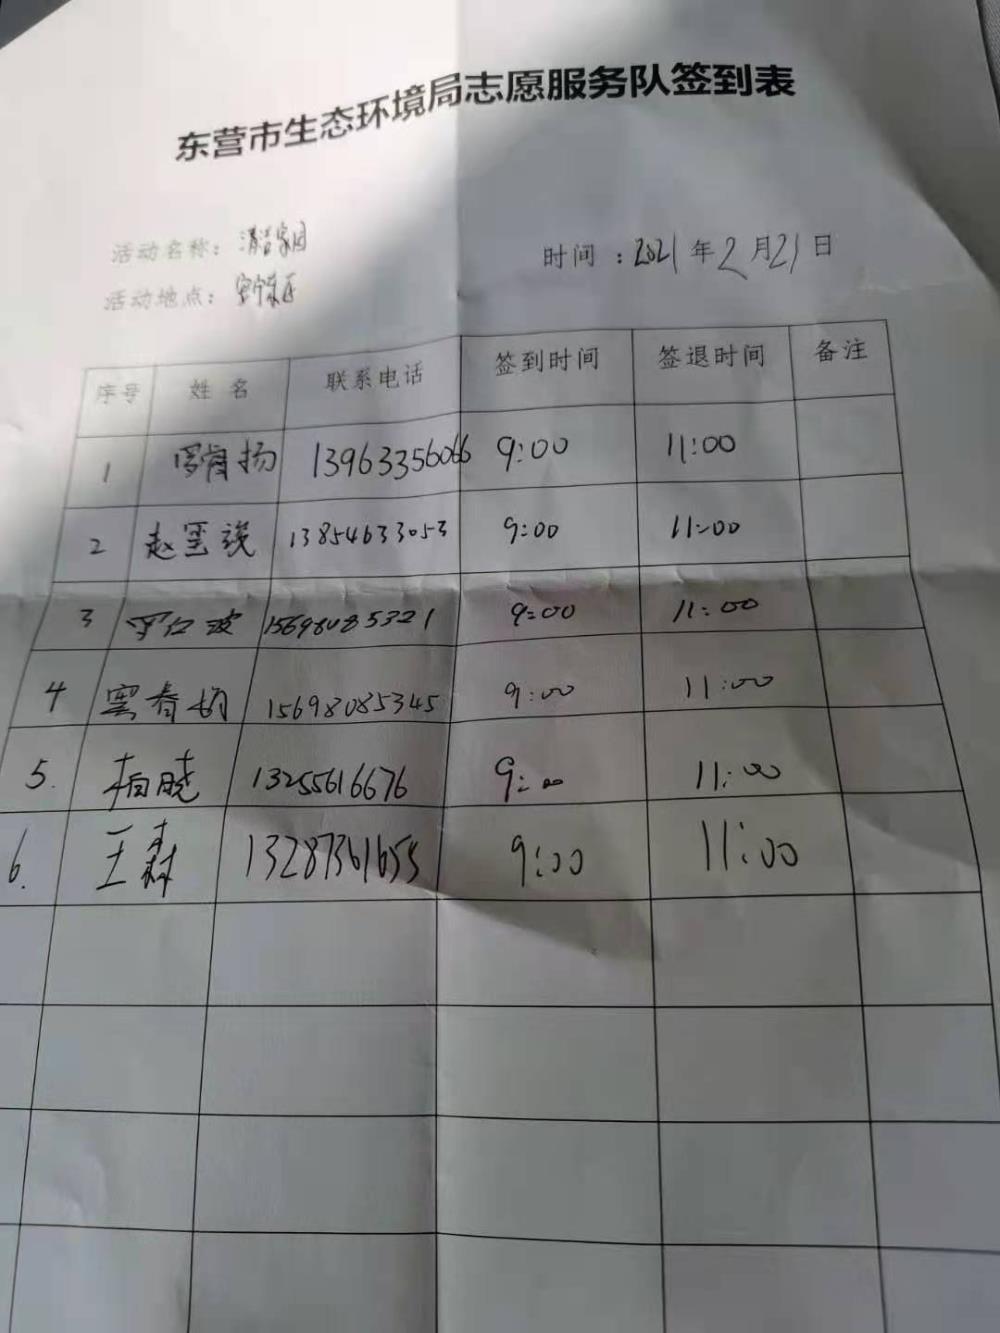 东营市生态环境局志愿服务队签到表
活动名称：清洁家园 时间：2021年2月21日
活动地点：
序号 姓名 联系电话 签到时间 签退时间 备注
1 扬 13963356066 9:00 11:00
2 赵 13854633053 9:00 11:00
3 15698085321 9:00 11:00
4 窦春 15698085345 9:00 11:00
5. 柏晓 13255616676 9:00 11:00
6. 王森 13287361655 9:00 11:00